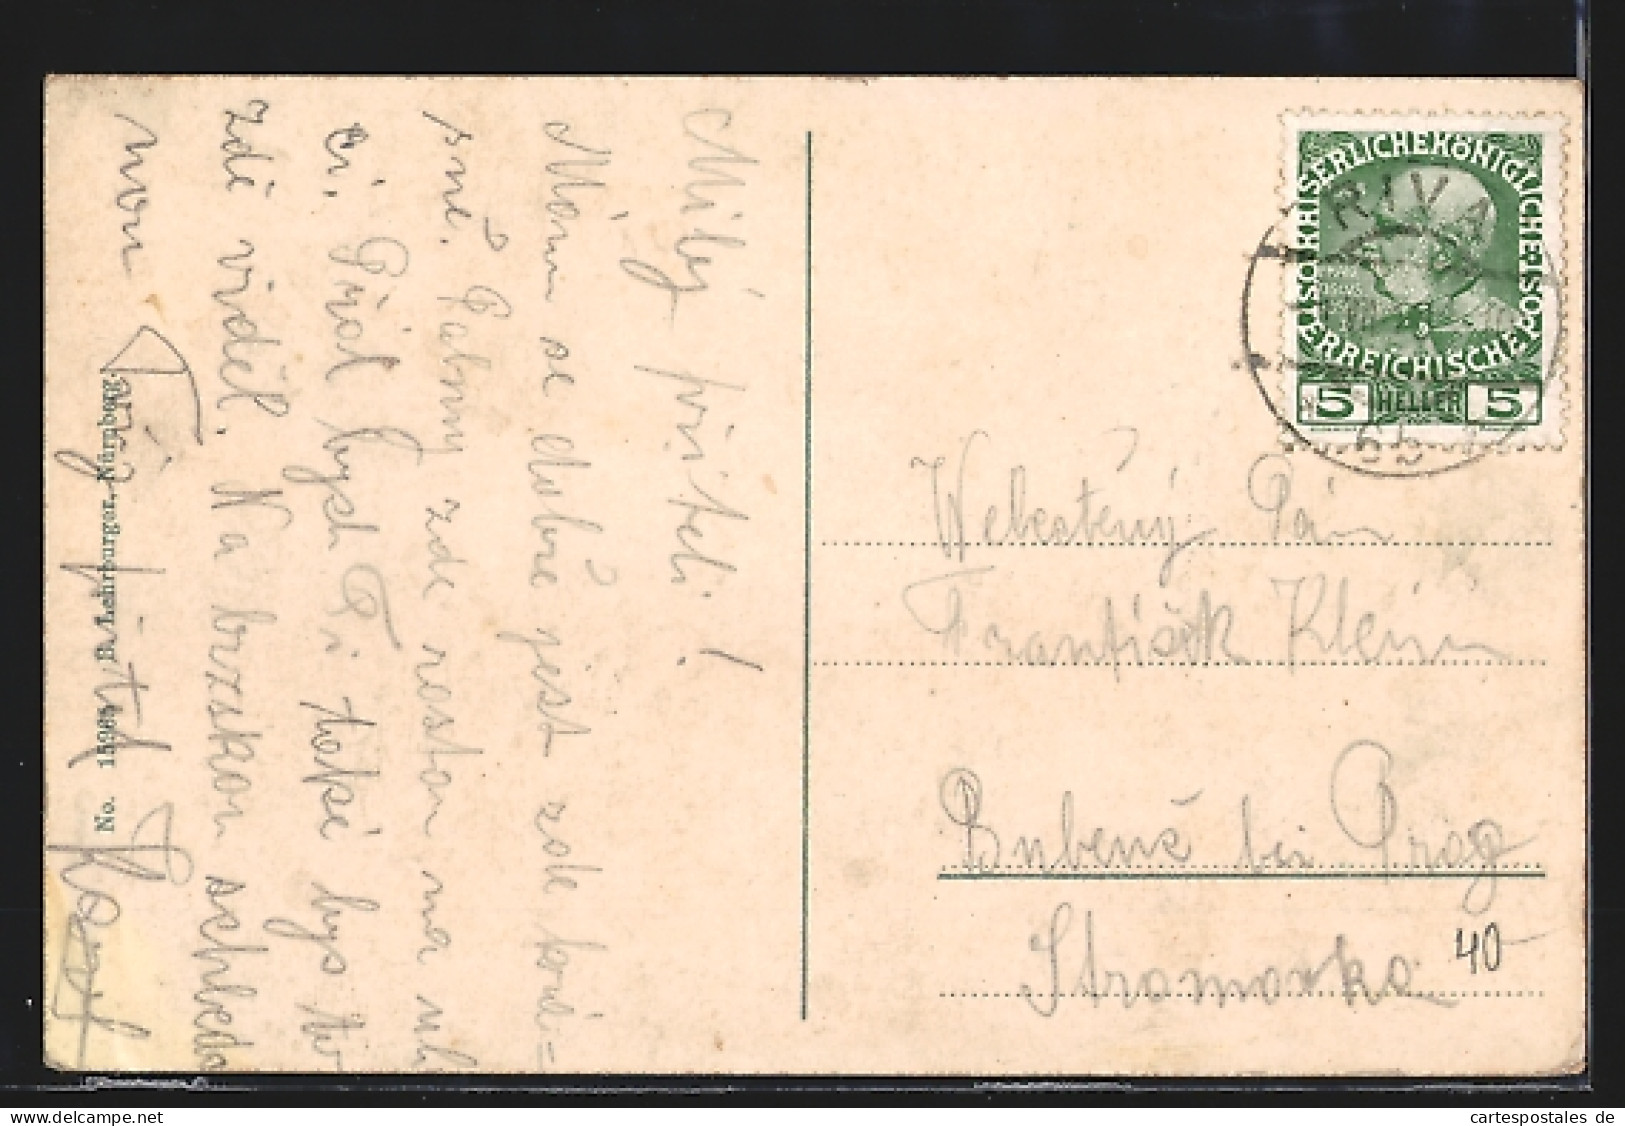 Milý příteli!
Mám se dobře jest zde krá=
sně. Palmy zde rostou na uli
ci. Přál bych Ti také bys to
zdé viděl. Na brzskou schleda
nou
Tvůj přítel Karel
No. 15968 B. Lehrburger, Nürnberg.
KAISERLICHE KÖNIGLICHE
ÖSTERREICHISCHE
RIVA
5 HELLER 5
Velectěný Pán
František Klein
Bubeneč bei Prag
Stromovka
40
cartespostales de